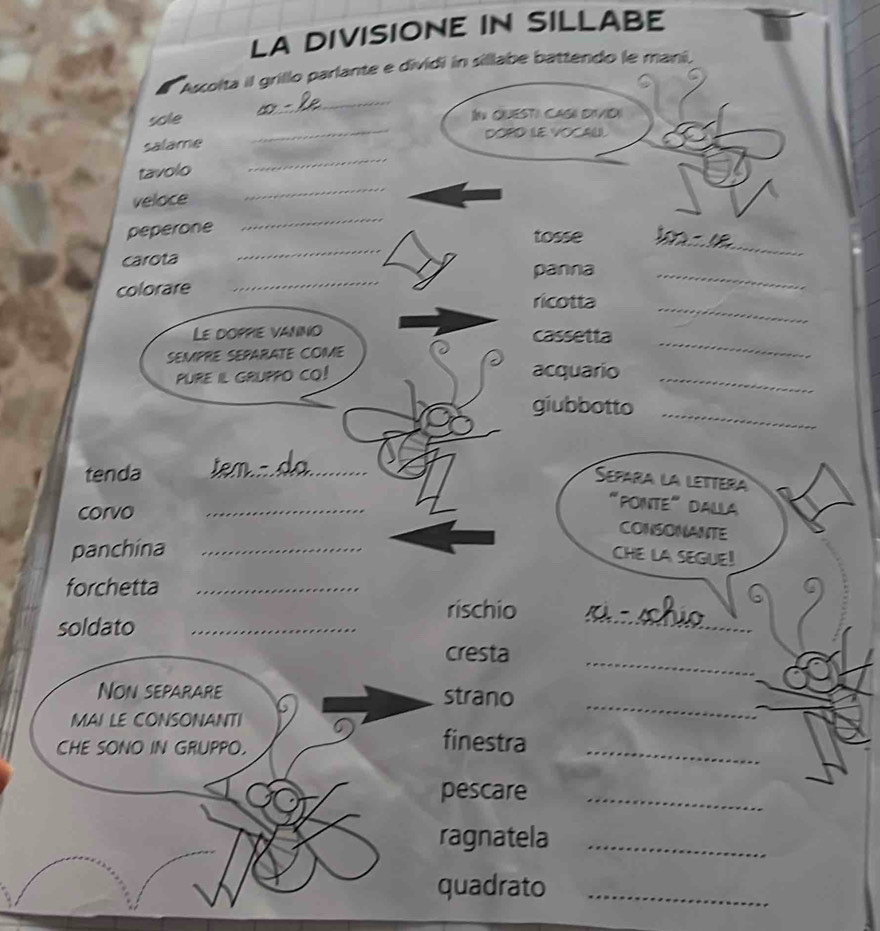 LA DIVISIONE IN SILLABE
Ascolta il grillo parlante e dividi in sillabe battendo le mani.
sole so - le
salame
tavolo
veloce
peperone
carota
colorare
IN QUESTI CASI DIVIDI
DOPO LE VOCALI.
tosse tos - se
panna
ricotta
cassetta
acquario
giubbotto
LE DOPPIE VANNO
SEMPRE SEPARATE COME
PURE IL GRUPPO CQ!
tenda ten - da
corvo
panchina
forchetta
soldato
SEPARA LA LETTERA
"PONTE" DALLA
CONSONANTE
CHE LA SEGUE!
rischio ri - schio
cresta
strano
finestra
pescare
ragnatela
quadrato
NON SEPARARE
MAI LE CONSONANTI
CHE SONO IN GRUPPO.